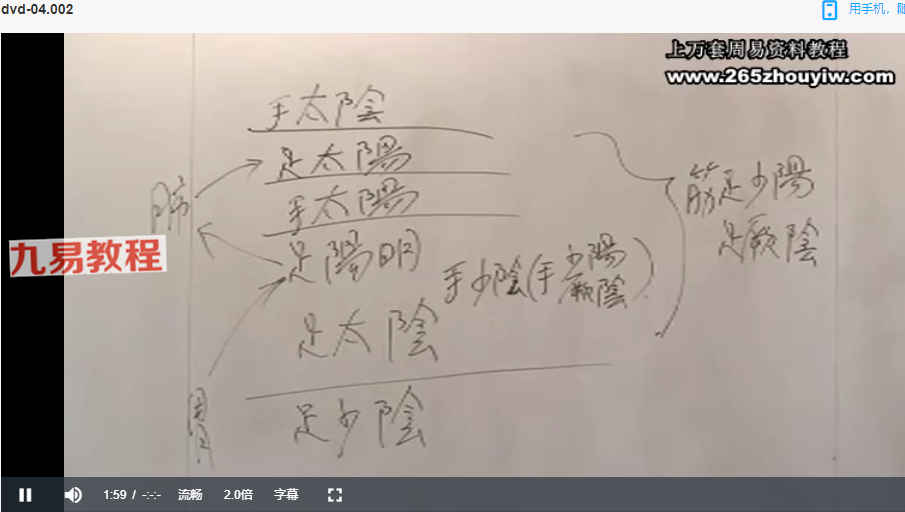 dvd-04.002
用手机,随
上万套周易资料教程
www.265zhouyiw.com
手太陰
足太陽
手太陽
足陽明
手少陰(手少陽
厥陰)
足太陰
足少陰
筋足少陽
足厥陰
九易教程
1:59 / -:-:-
流畅
2.0倍
字幕